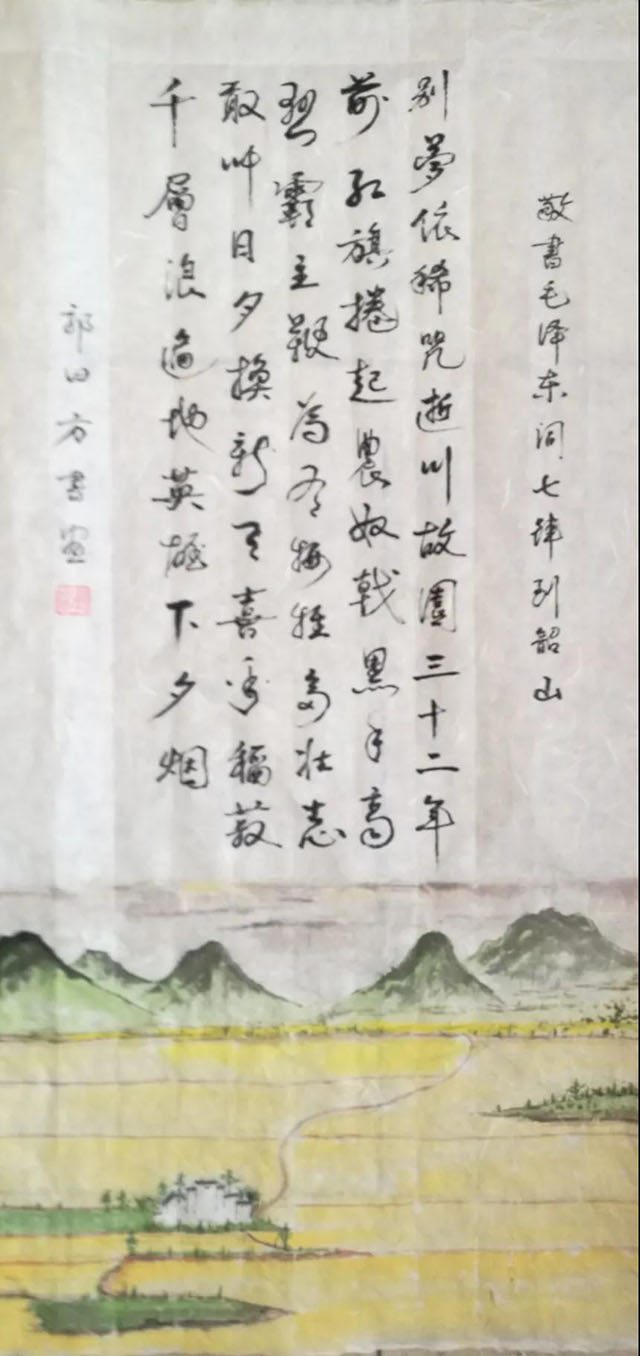 敬書毛泽东词七律到韶山
别夢依稀咒逝川故園三十二年
前红旗捲起農奴戟黑手高
悬霸主鞭為有犧牲多壮志
敢叫日月換新天喜看稻菽
千層浪遍地英雄下夕烟
郭曰方書画